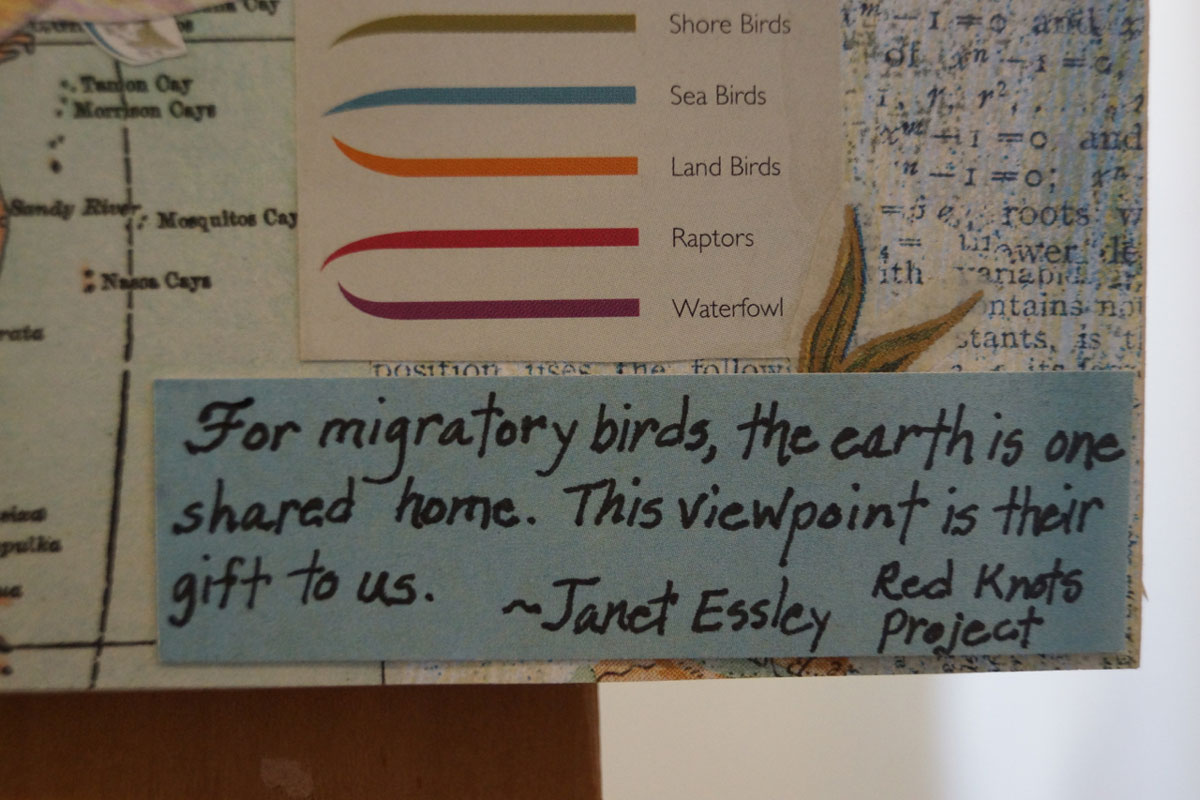 Cay
Tamon Cay
Morrison Cays
Sandy River
Mosquitos Cay
Nasca Cays
rata
Shore Birds
Sea Birds
Land Birds
Raptors
Waterfowl
of xⁿ − 1 = 0,
xᵐ − 1 = 0 and
ⁿ − 1 = 0;
roots
ith variabl
ntains no
stants, is
position uses the follow
For migratory birds, the earth is one
shared home. This viewpoint is their
gift to us.
~Janet Essley
Red Knots
Project